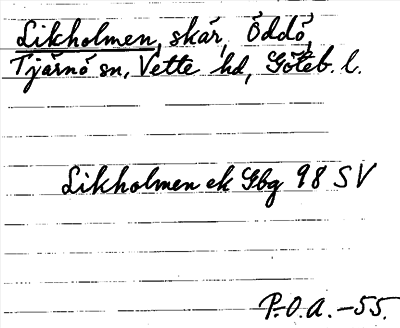 Likholmen, skär, Öddö,
Tjärnö sn, Vette hd, Göteb. l.
Likholmen ek Gbg 98 SV
P.O.A. -55.